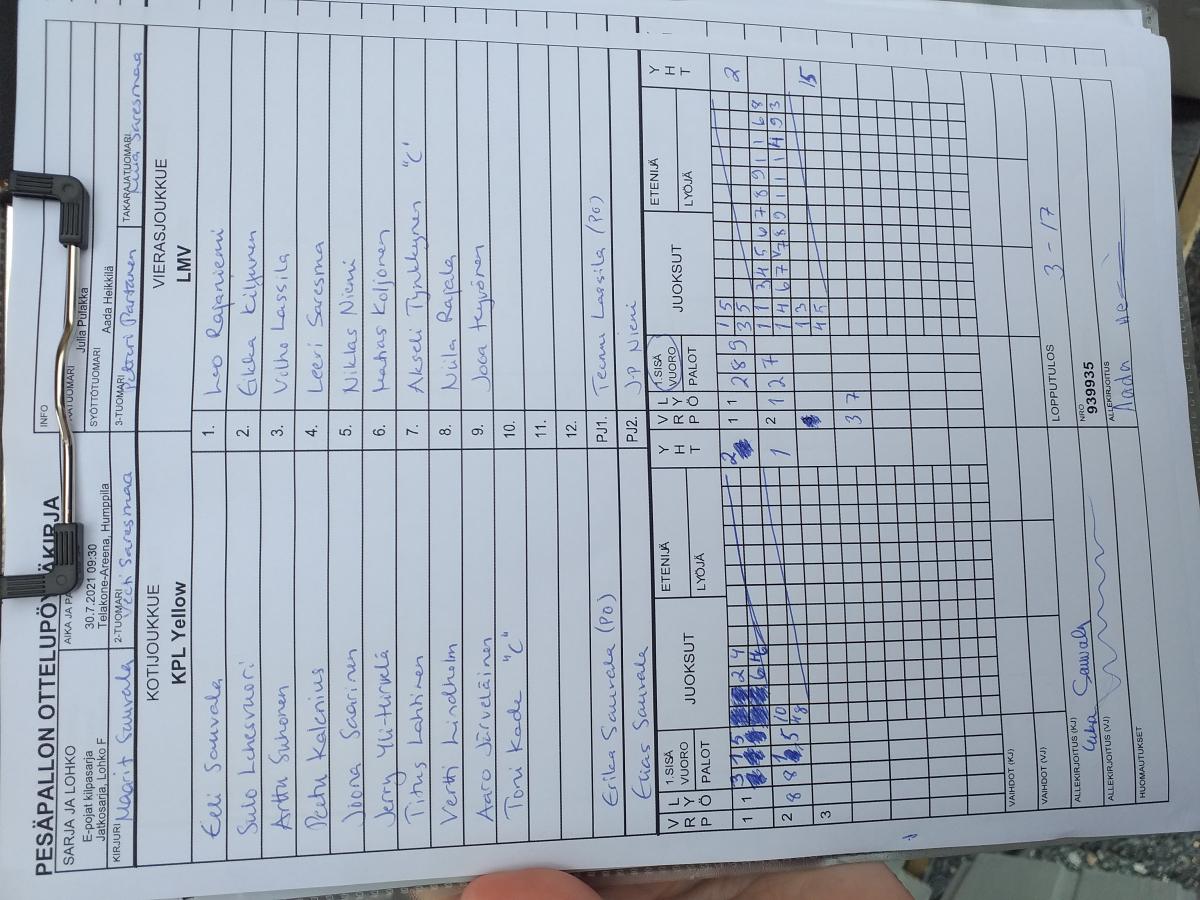 PESÄPALLON OTTELUPÖYTÄKIRJA
SARJA JA LOHKO
E-pojat kilpasarja
Jatkosarja, Lohko F
AIKA JA
30.7.2021 09:30
Telakone-Areena, Humppila
INFO
Julia Pulakka
SYÖTTÖTUOMARI
Aada Heikkilä
KIRJURI
Maarit Sauvala
2-TUOMARI
Veeti Saresmaa
3-TUOMARI
Petteri Partanen
TAKARAJATUOMARI
Saresmaa
KOTIJOUKKUE
KPL Yellow
VIERASJOUKKUE
LMV
Eeli Sauvala 1. Leo Rajaniemi
Sulo Lehesvuori 2. Eikka Kiljunen
Arttu Suhonen 3. Vilho Lassila
Peetu Kalenius 4. Leevi Saresma
Joona Saarinen 5. Niklas Niemi
Jerry Yli-Hirvelä 6. Matias Koljonen
Titus Lahtinen 7. Akseli Tynkkynen "C"
Vertti Lindholm 8. Niila Rapala
Aaro Järveläinen 9. Joca Hyvönen
Toni Kade "C" 10.
11.
12.
Erika Sauvala (PO) PJ1. Teemu Lassila (PO)
Elias Sauvala PJ2. J-P Niemi
VRP LYÖ 1.SISÄVUORO PALOT JUOKSUT ETENIJÄ LYÖJÄ YHT
1 1 3 1 5 2 4 2
6 4
2 8 8 5 10 1
48
3
VRP LYÖ 1.SISÄVUORO PALOT JUOKSUT ETENIJÄ LYÖJÄ YHT
1 1 2 8 9 1 5 2
3 5
2 1 2 7 1 1 3 4 5 6 7 8 9 1 1 6 8
1 4 6 7 7 8 9 1 1 1 4 9 3
1 3 15
4 5
3 7
VAIHDOT (KJ)
VAIHDOT (VJ)
LOPPUTULOS
3 - 17
ALLEKIRJOITUS (KJ)
Erika Sauvala
NRO
939935
ALLEKIRJOITUS (VJ)
ALLEKIRJOITUS
Aada He
HUOMAUTUKSET